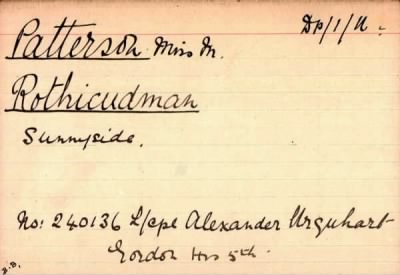 Dp/1/U.
Patterson Miss M.
Rothicudman
Sunnyside.
No: 240136 L/cpl Alexander Urquhart
Gordon Hrs 5th.
B.B.